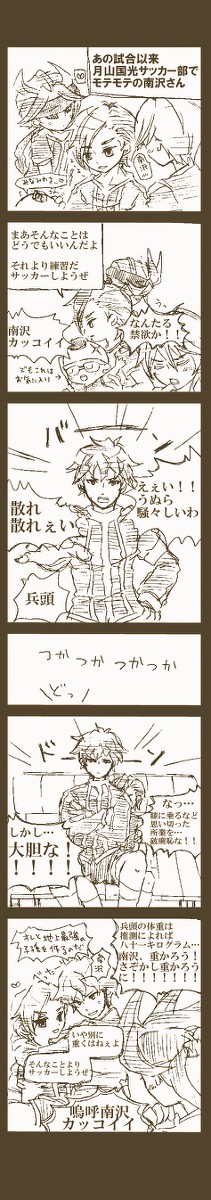 あの試合以来
月山国光サッカー部で
モテモテの南沢さん
まあそんなことは
どうでもいいんだよ
それより練習だ
サッカーしようぜ
うっ
なんたる
禁欲か！！
南沢
カッコイイ
でもこれは
お気に入り→
ええい！！
うぬら
騒々しいわ
散れ
散れぇい
兵頭
つか つか つかつか
どっ
ドーン
なっ…
膝に乗るなど
思い切った
所業を…
破廉恥な！！
しかし…
大胆な！
！！！！
兵頭の体重は
推測によれば
八十一キログラム…
南沢、重かろう！
さぞかし重かろう
に！！！！！！！
オレと地上最強の
子孫を作るのだ
南沢
いや別に
重くはねぇよ
そんなことより
サッカーしようぜ
嗚呼南沢
カッコイイ